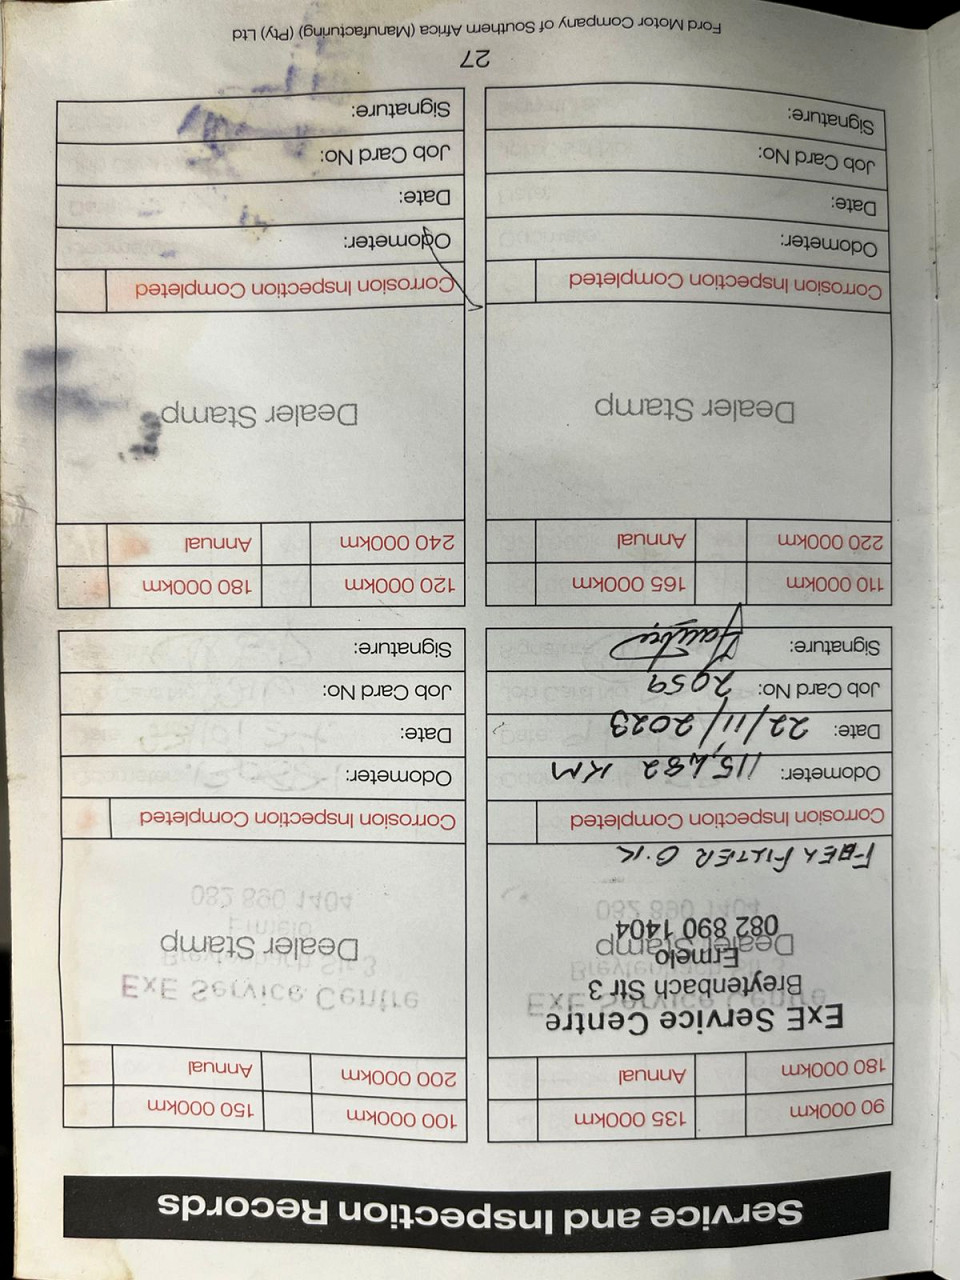 Service and Inspection Records
90 000km 135 000km
180 000km Annual
ExE Service Centre
Breytenbach Str 3
Ermelo
Dealer Stamp
082 890 1404
FUEL FILTER O.K
Corrosion Inspection Completed
Odometer: 115,482 KM
Date: 22/11/2023
Job Card No: 2059
Signature:
100 000km 150 000km
200 000km Annual
Dealer Stamp
Corrosion Inspection Completed
Odometer:
Date:
Job Card No:
Signature:
110 000km 165 000km
220 000km Annual
Dealer Stamp
Corrosion Inspection Completed
Odometer:
Date:
Job Card No:
Signature:
120 000km 180 000km
240 000km Annual
Dealer Stamp
Corrosion Inspection Completed
Odometer:
Date:
Job Card No:
Signature:
27
Ford Motor Company of Southern Africa (Manufacturing) (Pty) Ltd